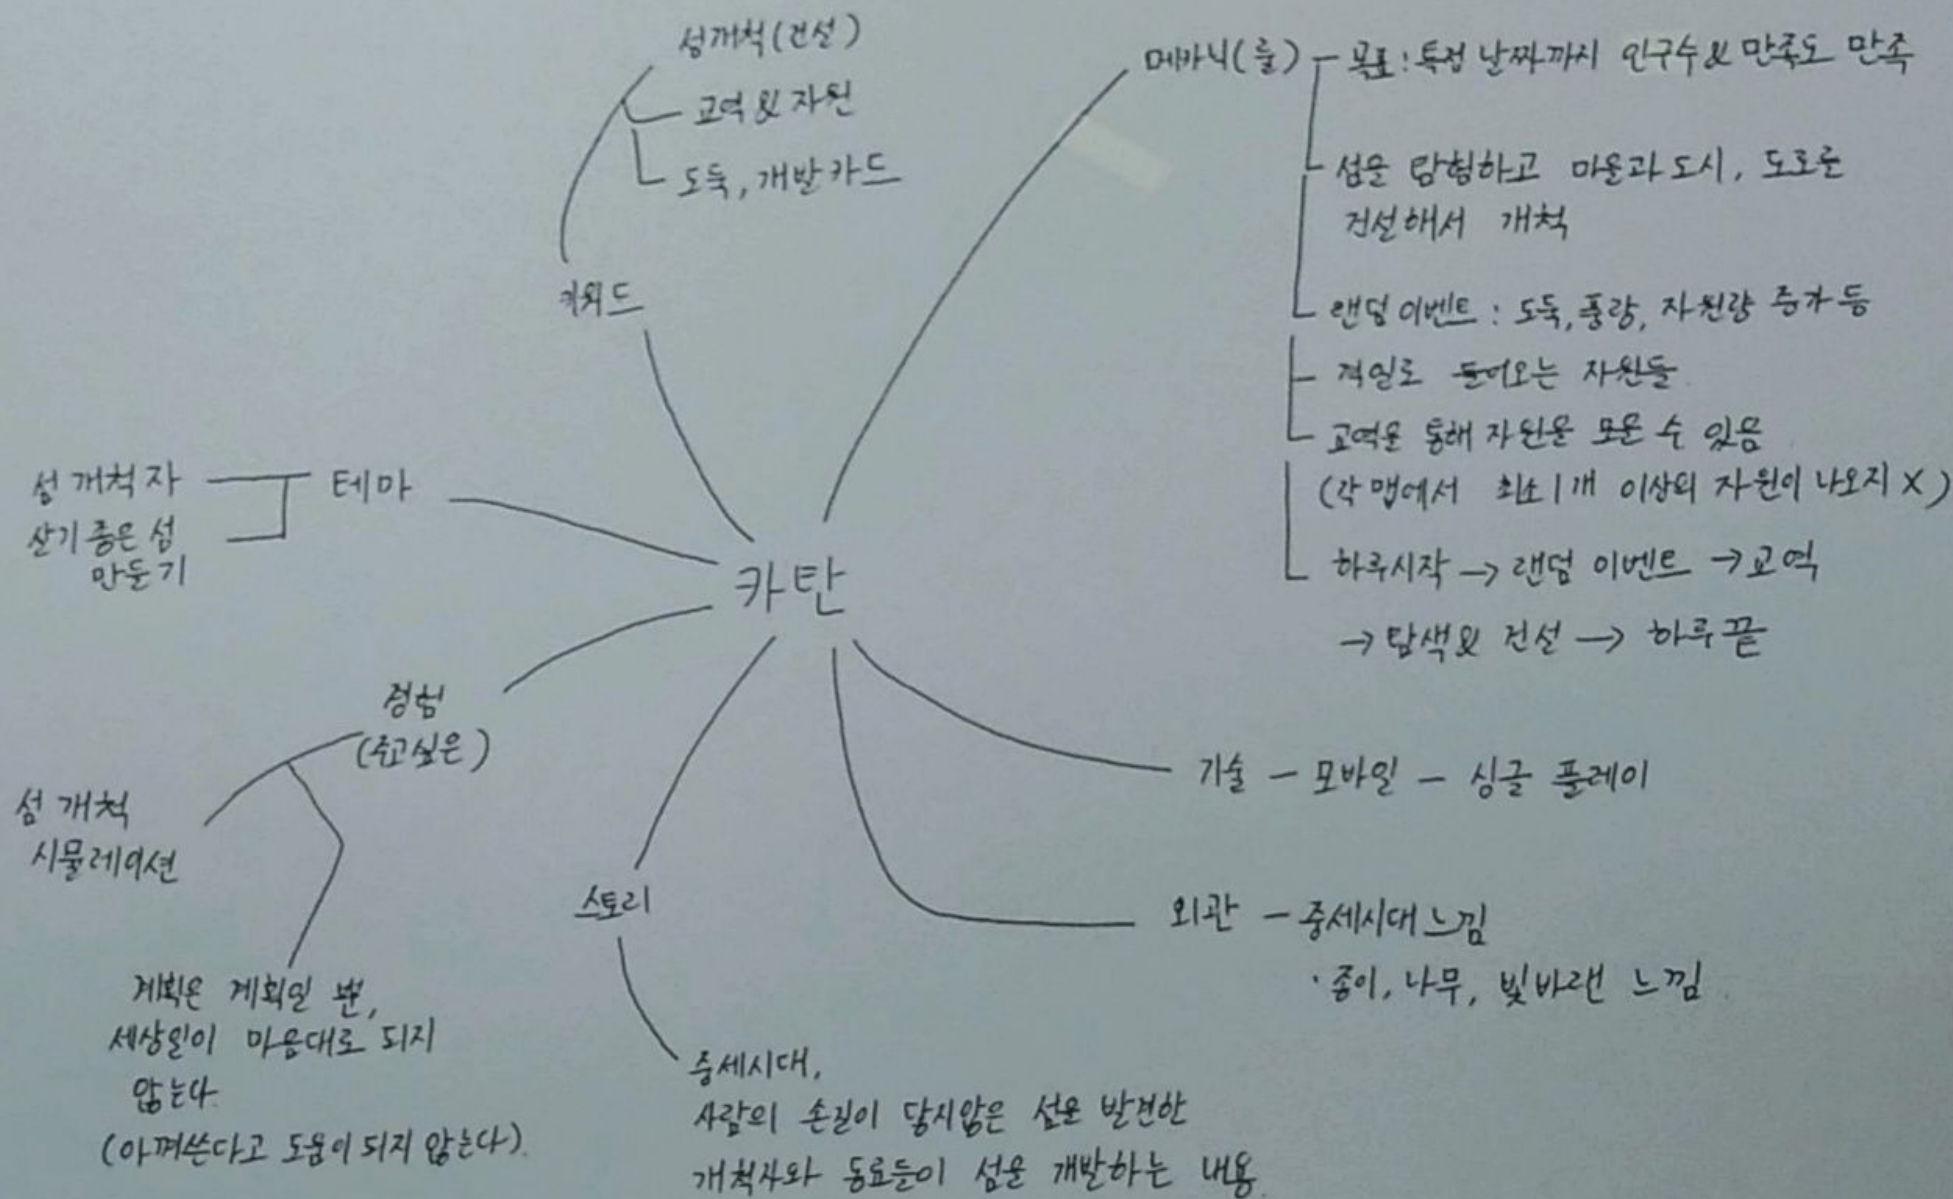 섬개척(건설)
교역 & 자원
도둑, 개발 카드
키워드
메카닉(룰) - 목표: 특정 날짜까지 인구수 & 만족도 만족
섬을 탐험하고 마을과 도시, 도로를
건설해서 개척
랜덤 이벤트 : 도둑, 풍랑, 자원량 증가 등
격일로 들어오는 자원들
교역을 통해 자원을 모을 수 있음
(각 맵에서 최소 1개 이상의 자원이 나오지 X)
하루시작 → 랜덤 이벤트 → 교역
→ 탐색 & 건설 → 하루 끝
테마
섬 개척자
살기 좋은 섬
만들기
카탄
경험
(주고싶은)
섬 개척
시뮬레이션
계획은 계획일 뿐,
세상일이 마음대로 되지
않는다.
(아껴쓴다고 도움이 되지 않는다).
스토리
중세시대,
사람의 손길이 닿지않은 섬을 발견한
개척자와 동료들이 섬을 개발하는 내용.
기술 - 모바일 - 싱글 플레이
외관 - 중세시대 느낌
· 종이, 나무, 빛바랜 느낌